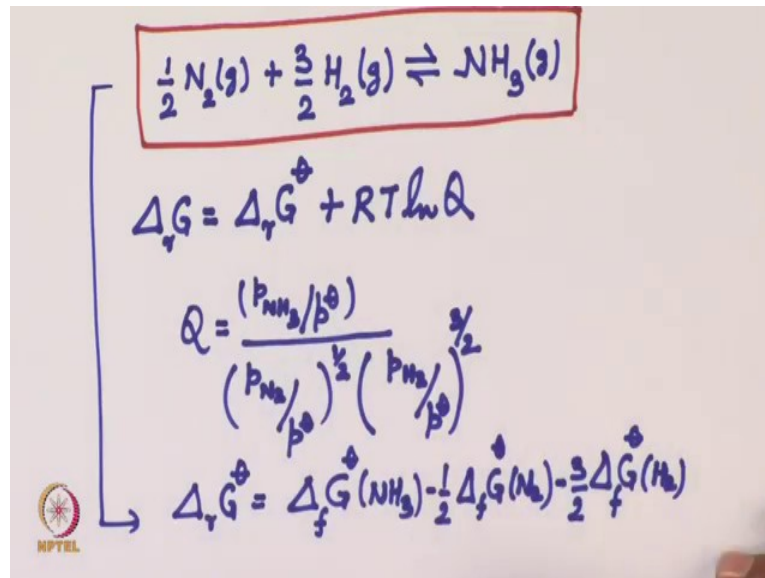 ½ N₂(g) + 3/2 H₂(g) ⇌ NH₃(g)
ΔᵣG = ΔᵣG^⊖ + RT ln Q
Q = (p_NH₃/p^⊖) / (p_N₂/p^⊖)^½ (p_H₂/p^⊖)^3/2
ΔᵣG^⊖ = Δ_fG^⊖(NH₃) - ½ Δ_fG^⊖(N₂) - 3/2 Δ_fG^⊖(H₂)
NPTEL